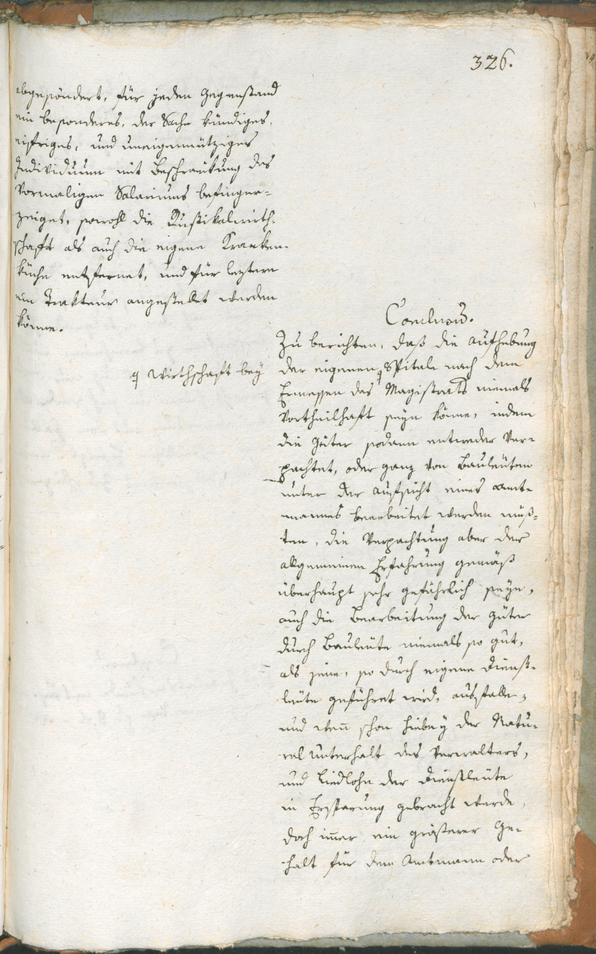 326.
abgesöndert, für jeden Gegenstand
ein besonderes, der Sache kündiges,
eifriges, und uneigennütziges
Individuum mit Beschränkung des
vormaligen Salariums
sowohl die Rustikalwirth-
schaft als auch die eigene Kranken-
küche entfernet, und für leztere
ein Trakteur angestellt werden
könne.
Conclusum.
Zu berichten, daß die Aufhebung
der eigenen Spitals nach dem
Ermessen des Magistrats niemals
Wirthschaft bey
vortheilhaft seyn könne, indem
die Güter sodann entweder ver-
pachtet, oder ganz von Bauleüten
unter der Aufsicht eines Amt-
mannes bearbeitet werden müß-
ten, die Verpachtung aber der
allgemeinen Erfahrung gemäß
überhaupt sehr gefährlich seye,
auch die Bearbeitung der Güter
durch Bauleüte niemals so gut,
als jene, so durch eigene Dienst-
leüte geführet wird, ausfalle,
und wenn schon hiebey der Natu-
ral Unterhalt des Verwalters,
und Liedlohn der Dienstleüte
in Ersparung gebracht würde,
doch immer ein größerer Ge-
halt für den Amtmann oder